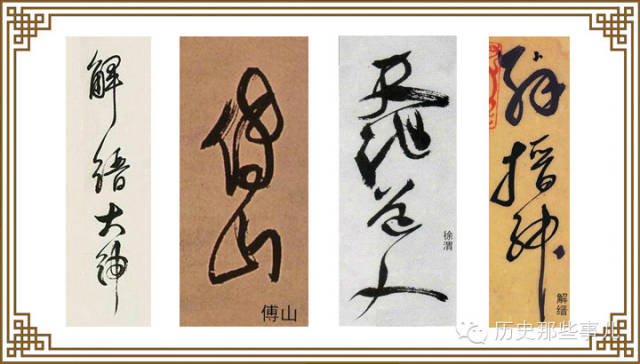 解縉大紳
傅山
傅山
天池道人
徐渭
解搢紳
解缙
历史那些事儿